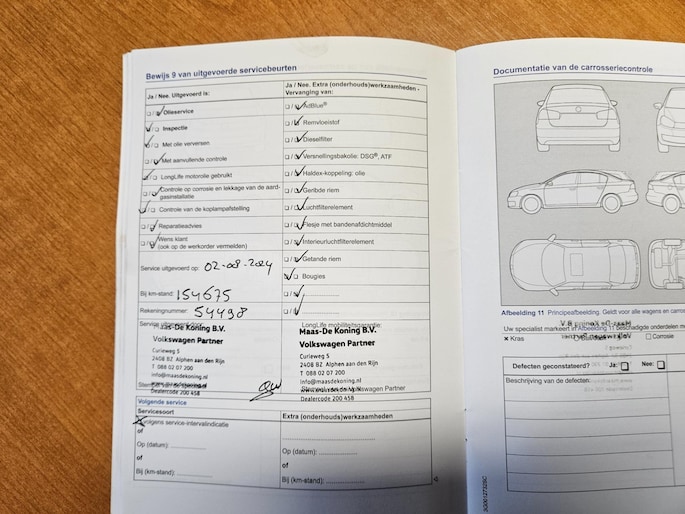 Bewijs 9 van uitgevoerde servicebeurten
Ja / Nee. Uitgevoerd is:
Olieservice
Inspectie
Met olie verversen
Met aanvullende controle
LongLife motorolie gebruikt
Controle op corrosie en lekkage van de aard-
gasinstallatie
Controle van de koplampafstelling
Reparatieadvies
Wens klant
(ook op de werkorder vermelden)
Service uitgevoerd op: 02-08-2024
Bij km-stand: 154675
Rekeningnummer: 54498
Service
Maas-De Koning B.V.
Volkswagen Partner
Curieweg 5
2408 BZ Alphen aan den Rijn
T 088 02 07 200
info@maasdekoning.nl
Dealercode 200 458
Ja / Nee. Extra (onderhouds)werkzaamheden -
Vervanging van:
AdBlue®
Remvloeistof
Dieselfilter
Versnellingsbakolie: DSG®, ATF
Haldex-koppeling: olie
Geribde riem
Luchtfilterelement
Flesje met bandenafdichtmiddel
Interieurluchtfilterelement
Getande riem
Bougies
LongLife mobiliteitsgarantie:
Maas-De Koning B.V.
Volkswagen Partner
Curieweg 5
2408 BZ Alphen aan den Rijn
T 088 02 07 200
info@maasdekoning.nl
Volkswagen Partner
Dealercode 200 458
Volgende service
Servicesoort
volgens service-intervalindicatie
of
Op (datum):
of
Bij (km-stand):
Extra (onderhouds)werkzaamheden
Op (datum):
of
Bij (km-stand):
Documentatie van de carrosseriecontrole
Afbeelding 11 Principeafbeelding. Geldt voor alle wagens en carross
Uw specialist markeert in Afbeelding 11 beschadigde onderdelen m
x Kras
Corrosie
Defecten geconstateerd? Ja: Nee:
Beschrijving van de defecten: